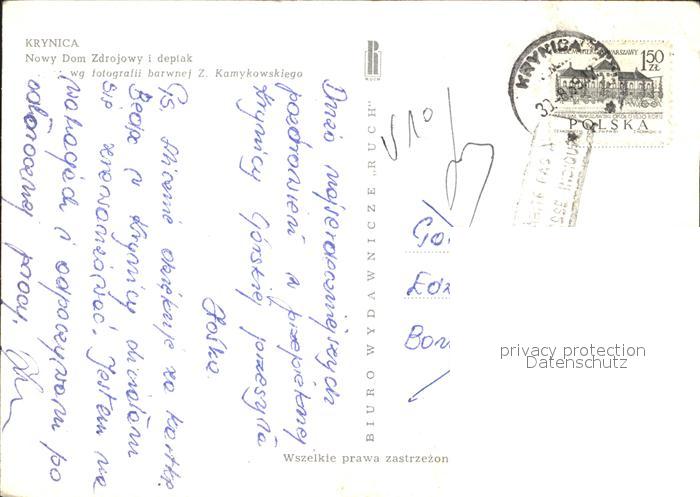 KRYNICA
Nowy Dom Zdrojowy i deptak
wg fotografii barwnej Z. Kamykowskiego
RUCH
BIURO WYDAWNICZE „RUCH"
Wszelkie prawa zastrzeżon
KRYNICA
1,50
ZŁ
POLSKA
V 10
Dużo najserdeczniejszych
pozdrowień z przepięknej
Krynicy Górskiej przesyła
Zośka.
Ps. Ślicznie dziękuję za kartkę.
Będąc w Krynicy chciałam
się zrewanżować. Jestem na
wakacjach i odpoczywam po
całorocznej pracy.
privacy protection
Datenschutz